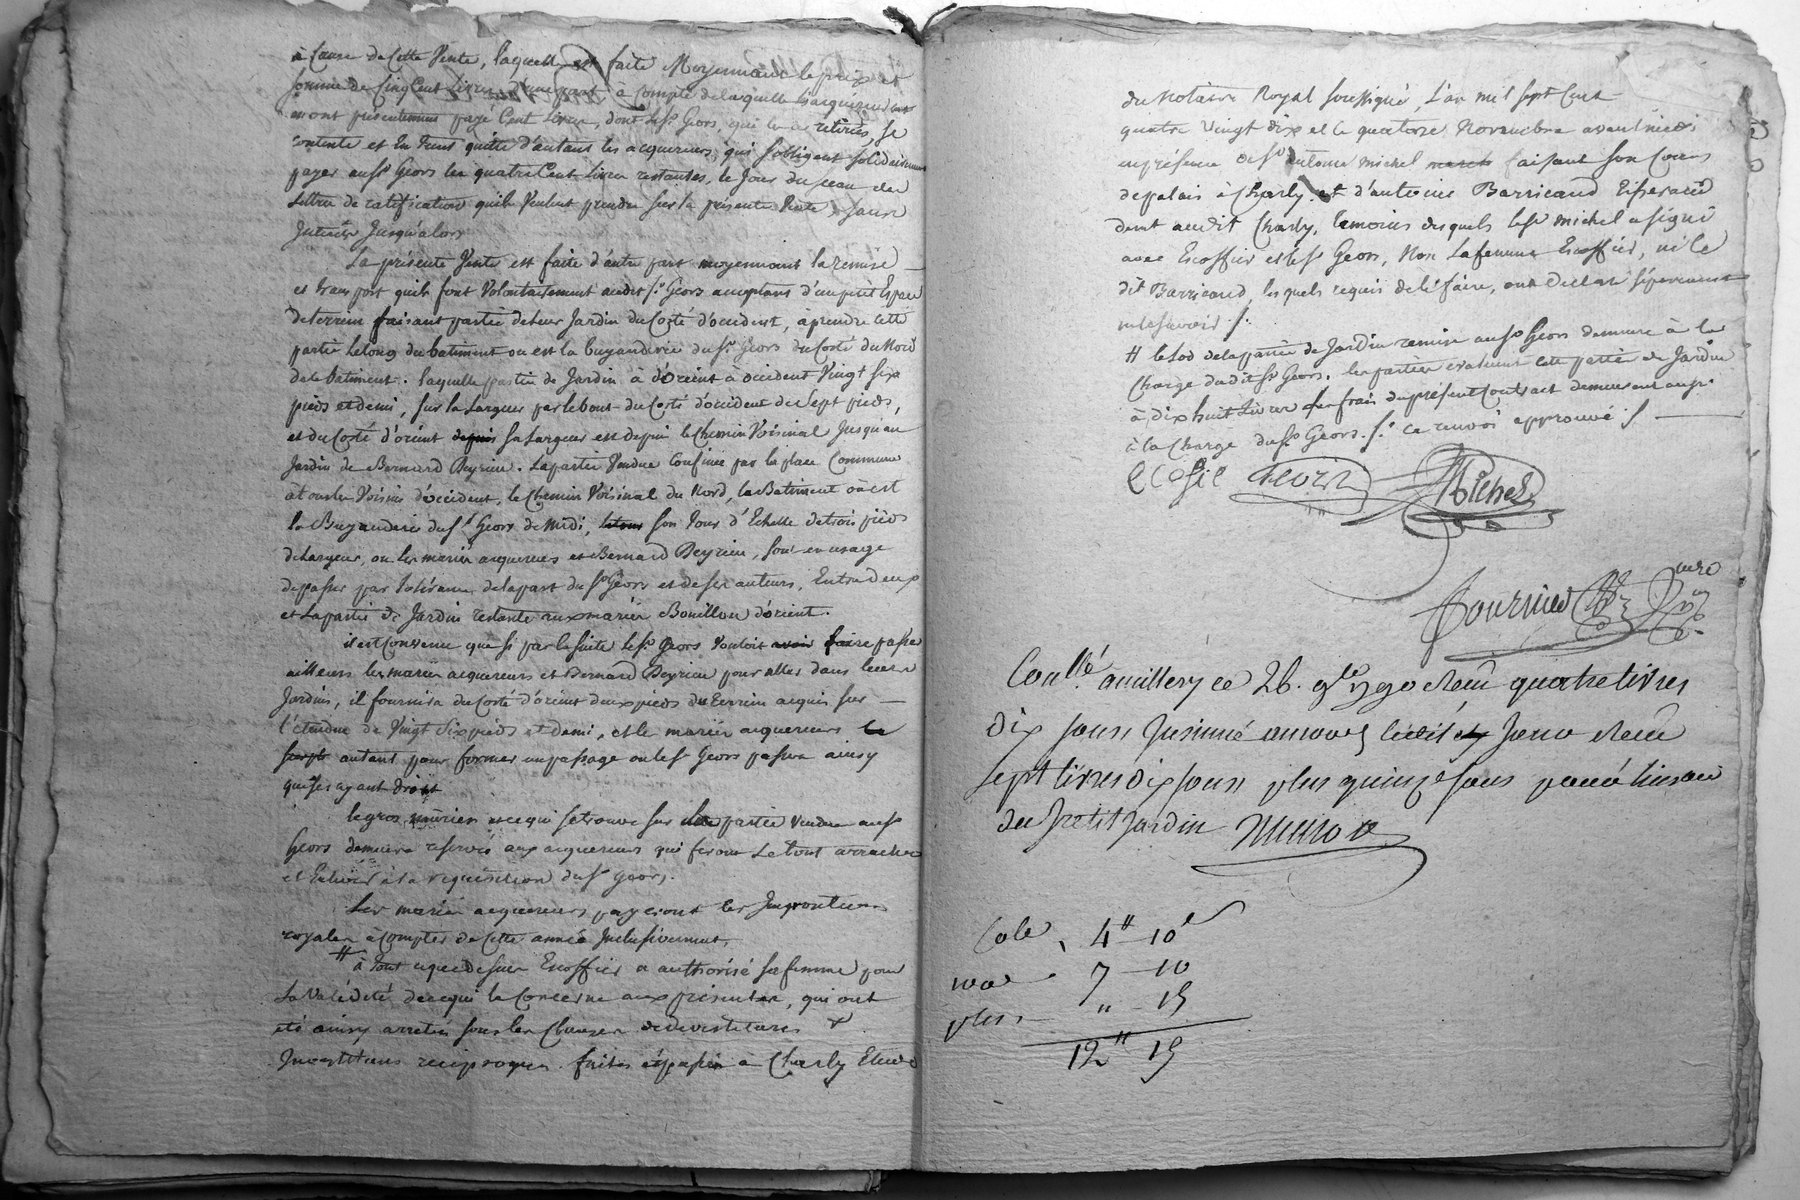 à Cause de Cette Vente, laquelle est faite Moyennant le prix et
somme de Cinq Cent Livres d'une part, à compte de laquelle les acquereurs
ont présentement payé Cent Livres, dont le Sr. Geors, qui les a retirés, se
contente et en tient quitte d'autant les acquereurs, qui s'obligent solidairement
payer au Sr Geors les quatre Cent Livres restantes, le Jour du sceau des
Lettres de ratification qu'ils veulent prendre sur la présente Vente sans
Interets Jusqu'alors
La présente Vente est faite d'autre part moyennant la remise
et transport qu'ils font Volontairement audit Sr. Geors acceptant d'un petit Espace
de terrein faisant partie de leur Jardin du Costé d'occident, à prendre cette
partie le long du batiment ou est la buyanderie du Sr. Geors du Costé du Nord
de ce batiment. laquelle partie de Jardin à d'orient à occident Vingt six
pieds et demi, sur la Largeur par le bout du Costé d'occident de Sept pieds,
et du Costé d'orient depuis sa Largeur est depuis le Chemin Voisinal Jusqu'au
Jardin de Bernard Peyrieu. La partie Vendue Confinée par la place Commune
à tous les Voisins d'occident, le Chemin Voisinal du Nord, le Batiment où est
la Buyanderie du Sr Geors de Midi, son tour d'Echelle de trois pieds
de Largeur, ou les mariés acquereurs et Bernard Peyrieu, sont en usage
de passer par tolérance de la part du Sr Geors et de ses auteurs, Entre deux
et La partie de Jardin restante aux mariés Bouillon d'orient.
il est Convenu que si par la suite le Sr. Geors Vouloit avoir faire passer
ailleurs les mariés acquereurs et Bernard Peyrieu pour aller dans leurs
Jardins, il fournira du Costé d'orient deux pieds du terrein acquis sur
l'étendue de Vingt Six pieds et demi, et les mariés acquereurs
autant pour former un passage ou le Sr Geors passera ainsy
que ses ayant droit
le gros murier et ce qui se trouve sur la partie Vendue au Sr
Geors demeure réservé aux acquereurs qui feront Le tout arracher
et Enlever à la requisition du Sr Geors.
Les mariés acquereurs payeront les Impositions
royales à Compter de Cette année Inclusivement,
# à tout ce que dessus Escoffier a authorisé sa femme pour
La Validité de ce qui la Concerne aux présentes, qui ont
été ainsy arretés sous les Clauses de devestitures &
Investitures reciproques. faites et passé à Charly Etude
du Notaire Royal soussigné, L'an mil sept Cent
quatre Vingt dix et le quatorze Novembre avant midi
en présence de Sr. antoine Michel faisant son Cours
de palais à Charly. et d'antoine Barricaud Tisserand
demt audit Charly, temoins desquels le Sr Michel a signé
avec Escoffier et le Sr Geors, Non La femme Escoffier, ni le
dit Barricaud, lesquels requis de le faire, ont Declaré séparement
ne le savoir /.
# le Lod de la partie de Jardin remise au Sr Geors demeure à la
Charge dudit Sr Geors. les parties évaluent cette partie de Jardin
à dix huit Livres les frais du présent Contract demeurent aussi
à la Charge du Sr. Geors. /. ce renvoi approuvé /
Geors Michel
Fournier
Conllé a millery ce 26. 9bre 1790 Reçu quatre livres
Dix sous Insinué Reçu
sept livres dix sous plus quinze sous
du Petit Jardin
Cole, 4# 10s
7 10
plus " 15
12# 15